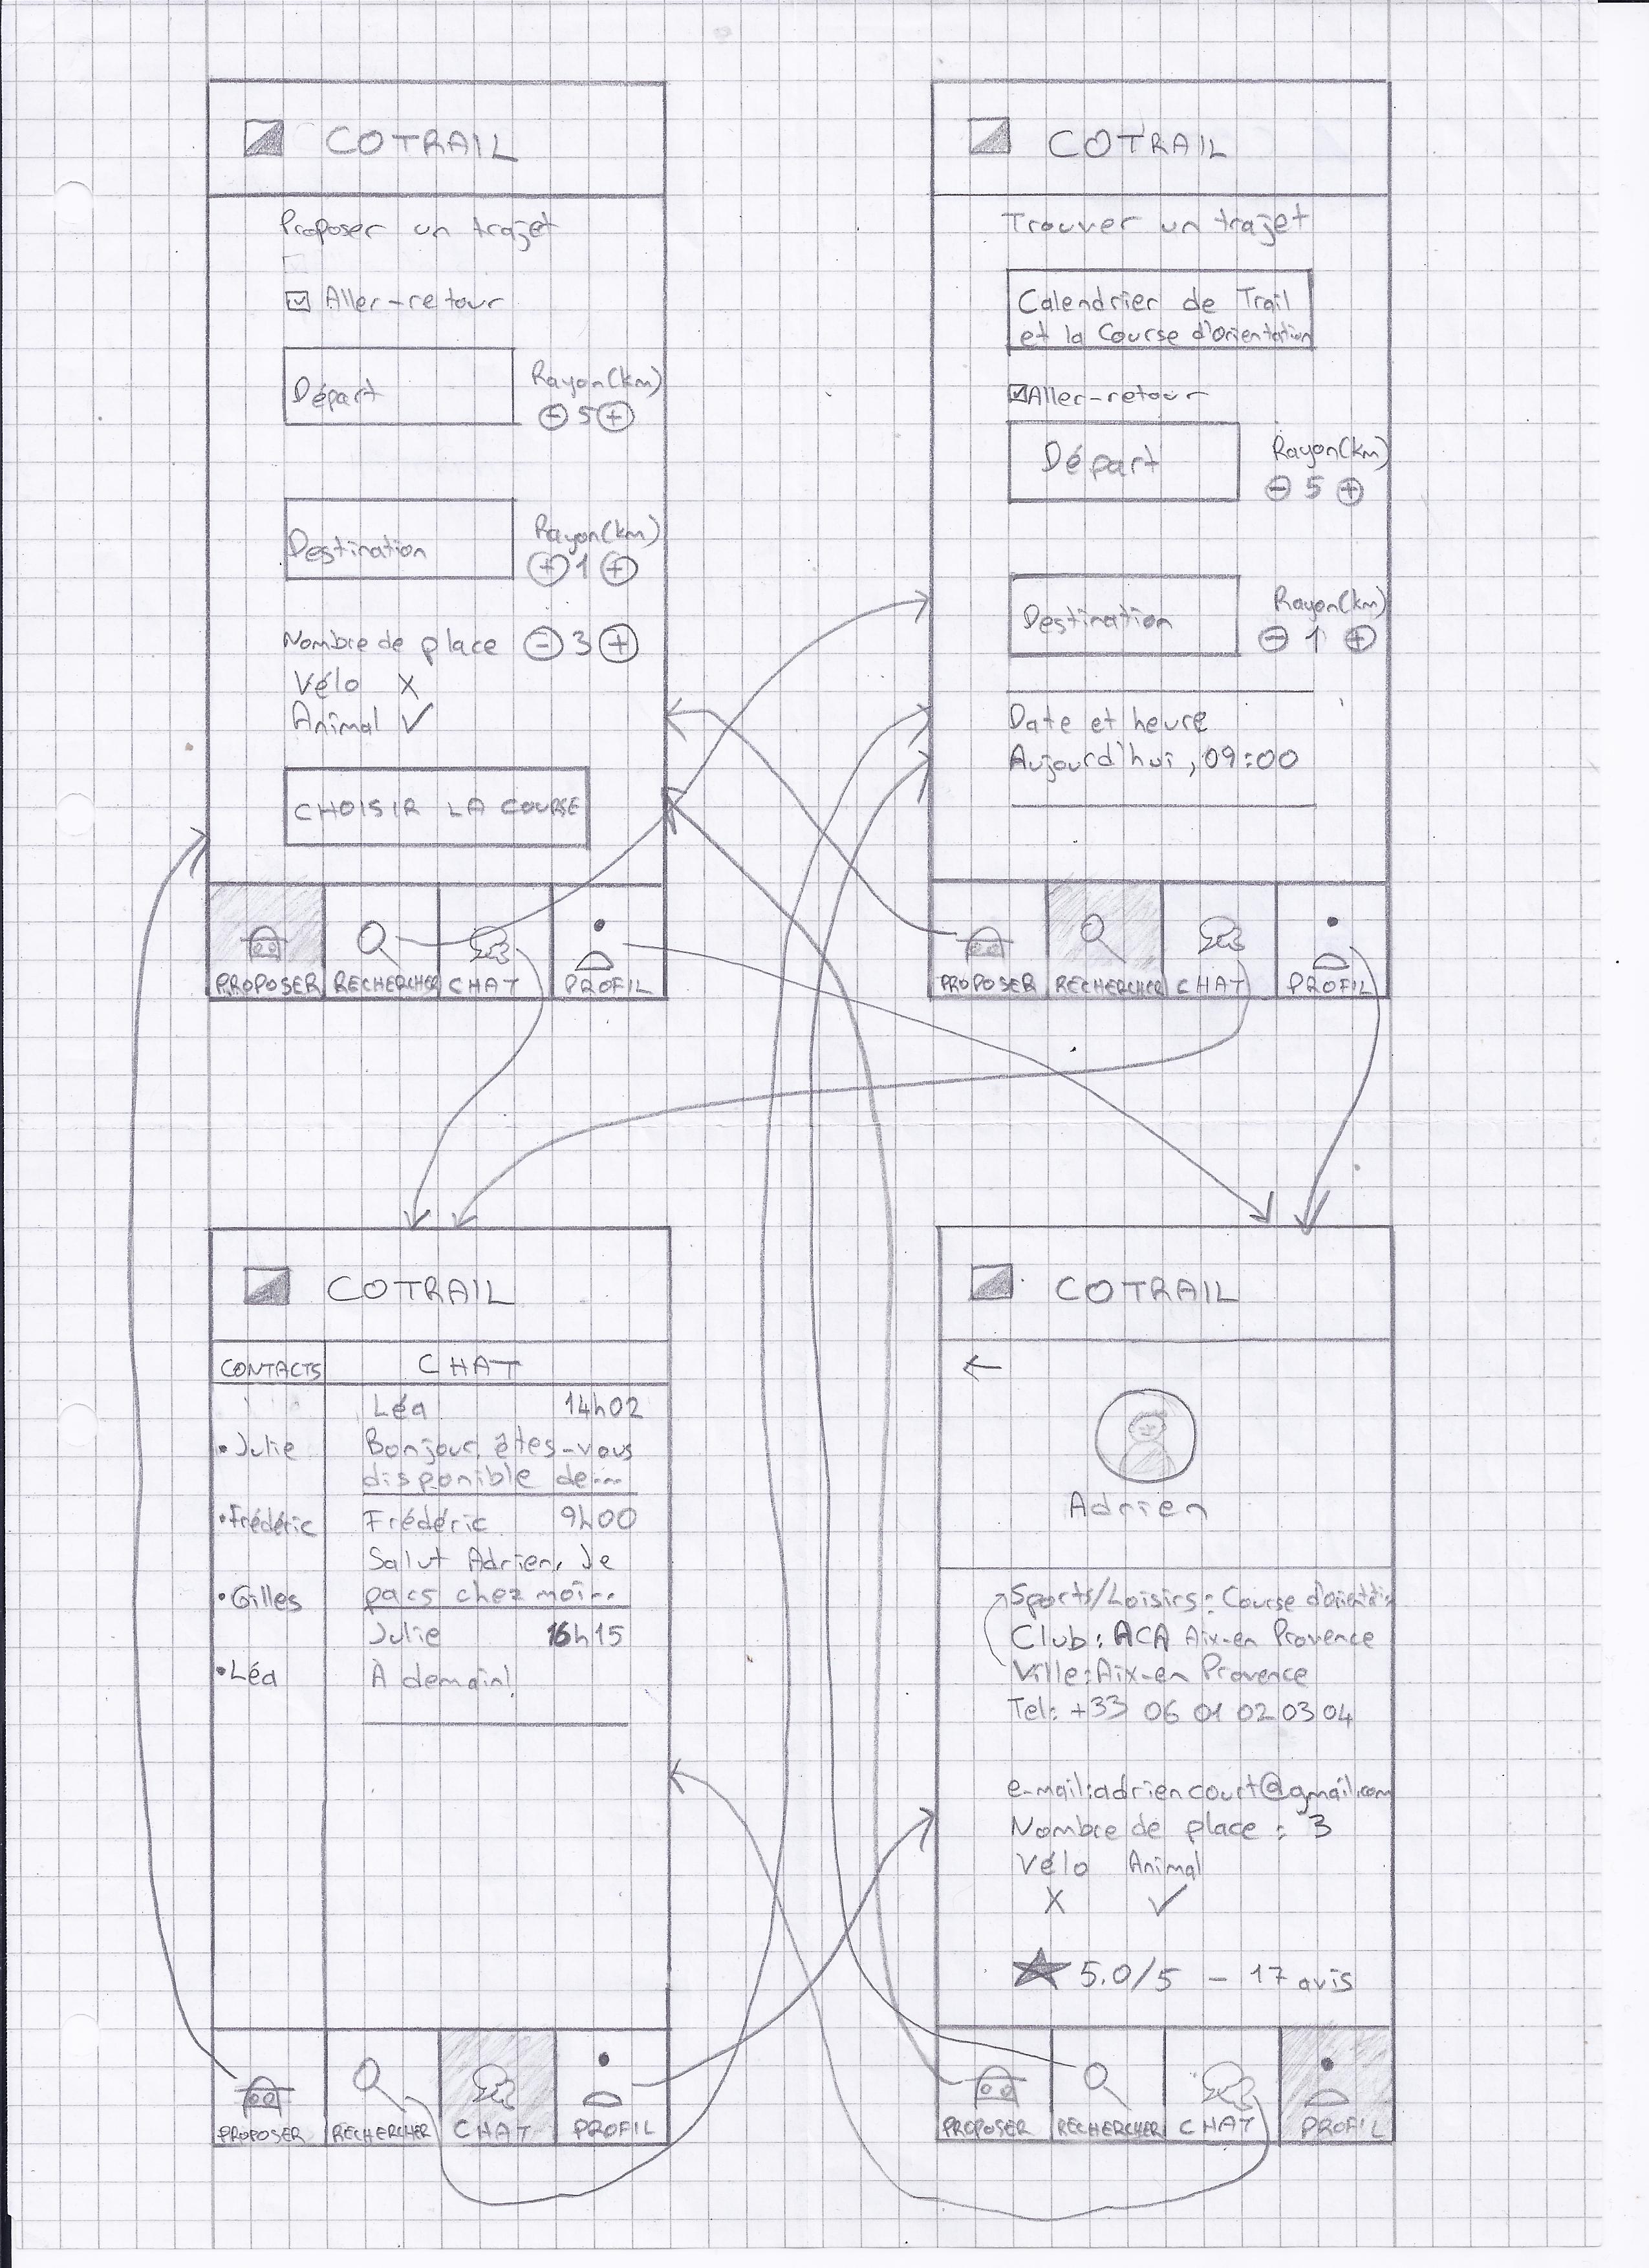 COTRAIL
Proposer un trajet
Aller-retour
Départ
Rayon(km)
- 5 +
Destination
Rayon(km)
+ 1 +
Nombre de place - 3 +
Vélo X
Animal ✓
CHOISIR LA COURSE
PROPOSER RECHERCHER CHAT PROFIL
COTRAIL
Trouver un trajet
Calendrier de Trail
et la Course d'Orientation
Aller-retour
Départ
Rayon(km)
- 5 +
Destination
Rayon(km)
- 1 +
Date et heure
Aujourd'hui, 09:00
PROPOSER RECHERCHER CHAT PROFIL
COTRAIL
CONTACTS CHAT
• Julie
• Frédéric
• Gilles
• Léa
Léa 14h02
Bonjour, êtes-vous
disponible de...
Frédéric 9h00
Salut Adrien, Je
pars chez moi...
Julie 16h15
À demain!
PROPOSER RECHERCHER CHAT PROFIL
COTRAIL
←
Adrien
Sports/Loisirs: Course d'orientation
Club: ACA Aix-en Provence
Ville: Aix-en Provence
Tel: +33 06 01 02 03 04
e-mail:adriencourt@gmail.com
Nombre de place : 3
Vélo Animal
X ✓
★ 5.0/5 - 17 avis
PROPOSER RECHERCHER CHAT PROFIL